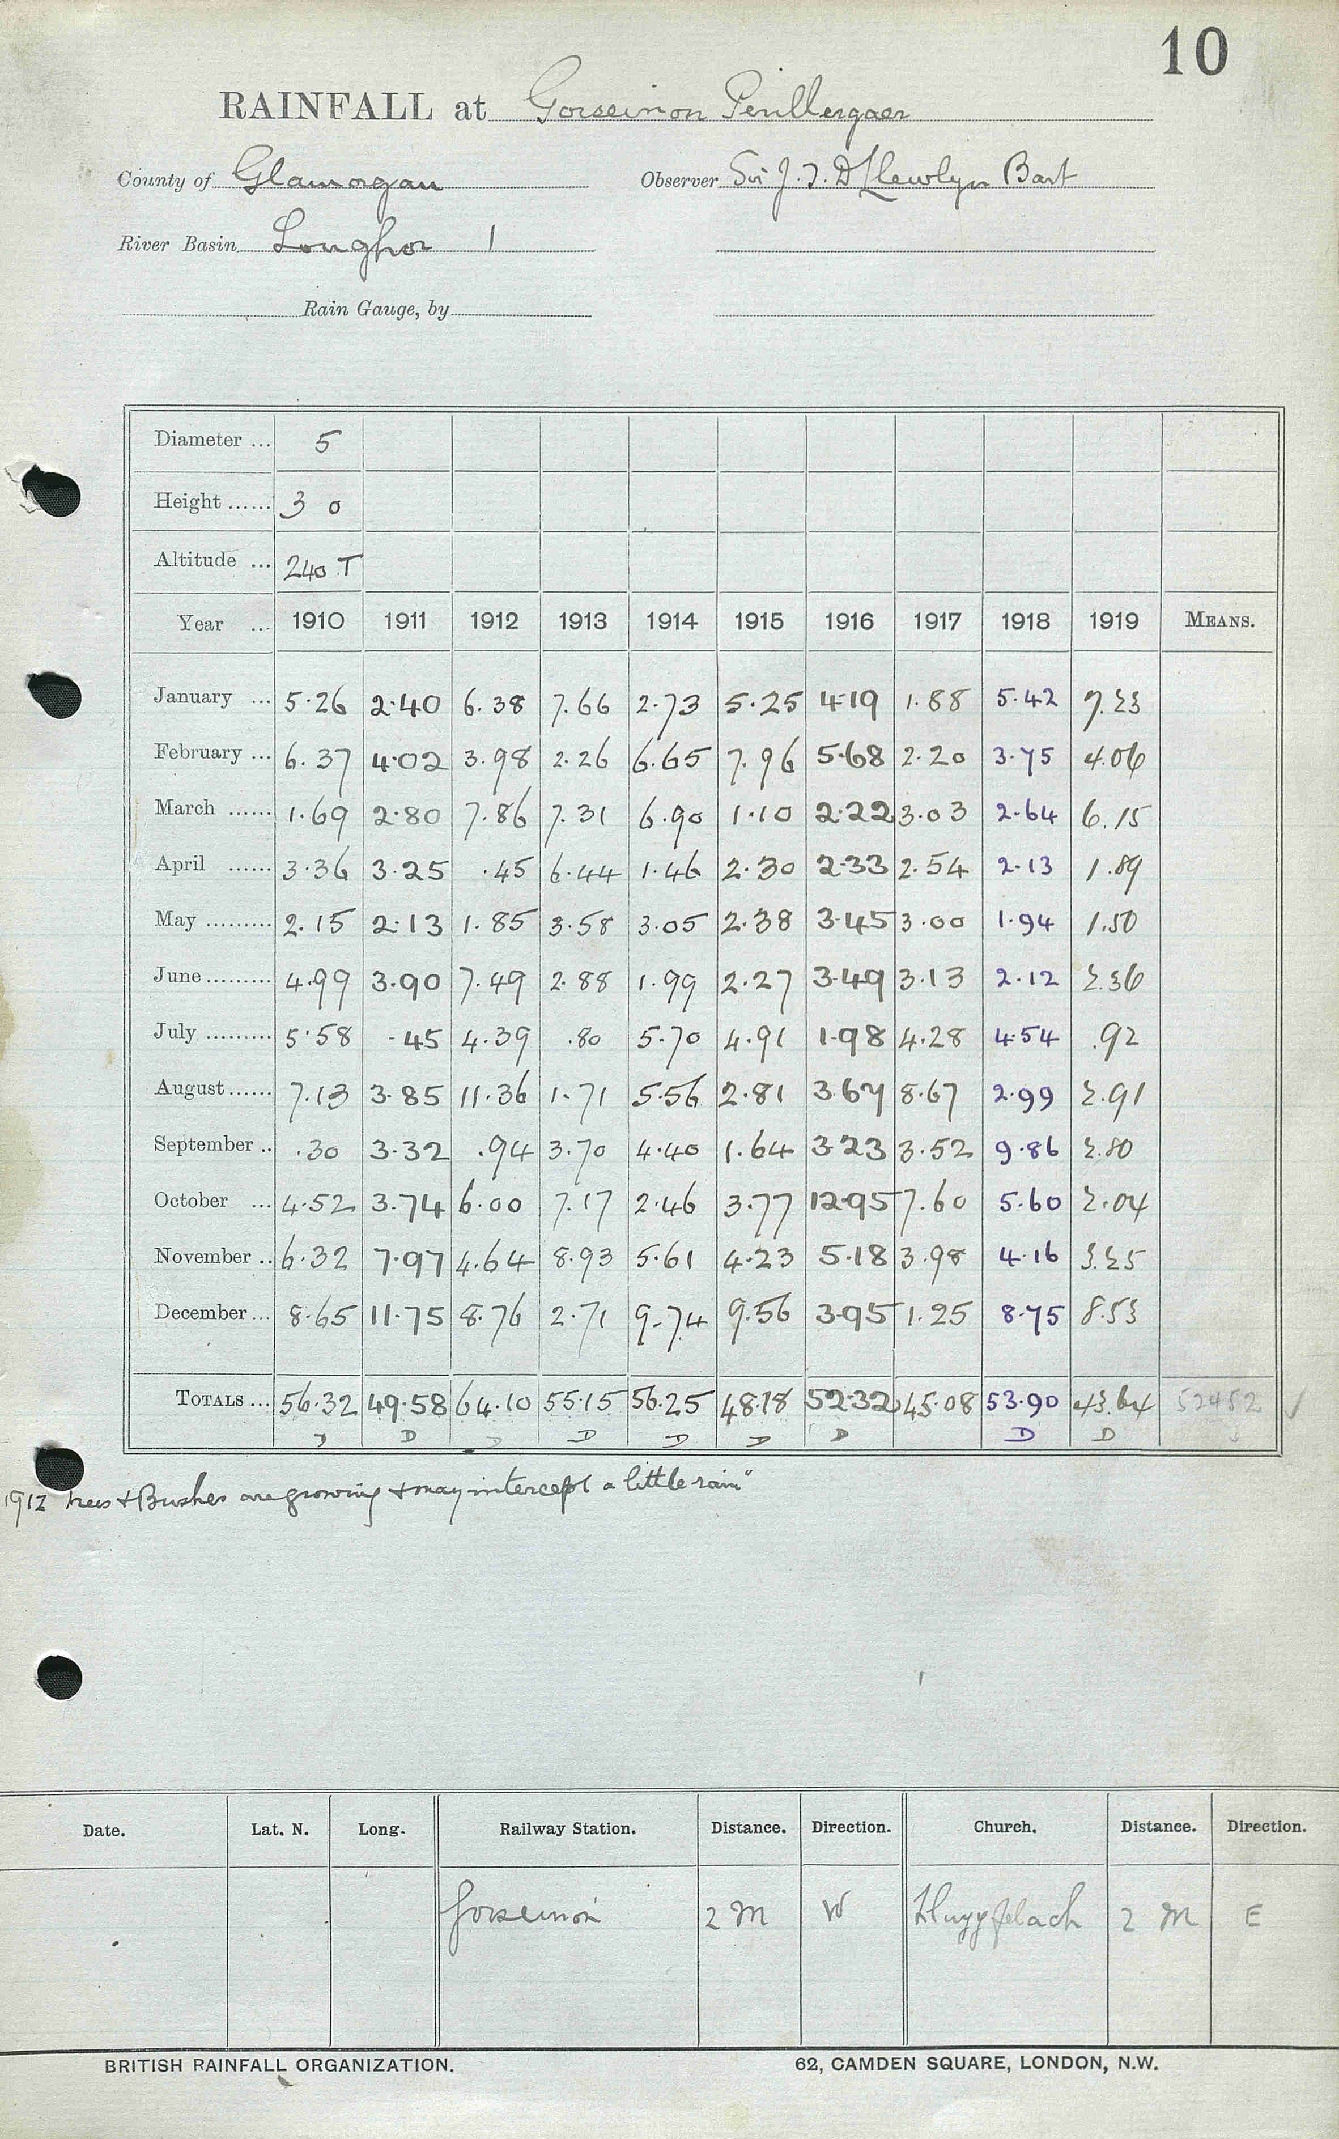 10
RAINFALL at Gorseinon Penllergaer
County of Glamorgan Observer Sir J. T. D Llewelyn Bart
River Basin Loughor 1
Rain Gauge, by
Diameter ... 5
Height ...... 3 0
Altitude ... 240 T
Year ... 1910 1911 1912 1913 1914 1915 1916 1917 1918 1919 MEANS.
January ... 5.26 2.40 6.38 7.66 2.73 5.25 4.19 1.88 5.42 7.23
February ... 6.37 4.02 3.98 2.26 6.65 7.96 5.68 2.20 3.75 4.06
March ...... 1.69 2.80 7.86 7.31 6.90 1.10 2.22 3.03 2.64 6.15
April ...... 3.36 3.25 .45 6.44 1.46 2.30 2.33 2.54 2.13 1.89
May ......... 2.15 2.13 1.85 3.58 3.05 2.38 3.45 3.00 1.94 1.50
June ......... 4.99 3.90 7.49 2.88 1.99 2.27 3.49 3.13 2.12 2.36
July ......... 5.58 .45 4.39 .80 5.70 4.91 1.98 4.28 4.54 .92
August ...... 7.13 3.85 11.36 1.71 5.56 2.81 3.67 8.67 2.99 2.91
September .. .30 3.32 .94 3.70 4.40 1.64 3.23 3.52 9.86 2.80
October ... 4.52 3.74 6.00 7.17 2.46 3.77 12.95 7.60 5.60 2.04
November .. 6.32 7.97 4.64 8.93 5.61 4.23 5.18 3.98 4.16 3.25
December ... 8.65 11.75 8.76 2.71 9.74 9.56 3.95 1.25 8.75 8.53
TOTALS ... 56.32 49.58 64.10 55.15 56.25 48.18 52.32 45.08 53.90 43.64 52452 ✓
D D D D D D D D D
1912 Trees + Bushes are growing + may intercept a little rain"
Date. Lat. N. Long. Railway Station. Distance. Direction. Church. Distance. Direction.
Gorseinon 2 M W 2 M E
BRITISH RAINFALL ORGANIZATION. 62, CAMDEN SQUARE, LONDON, N.W.